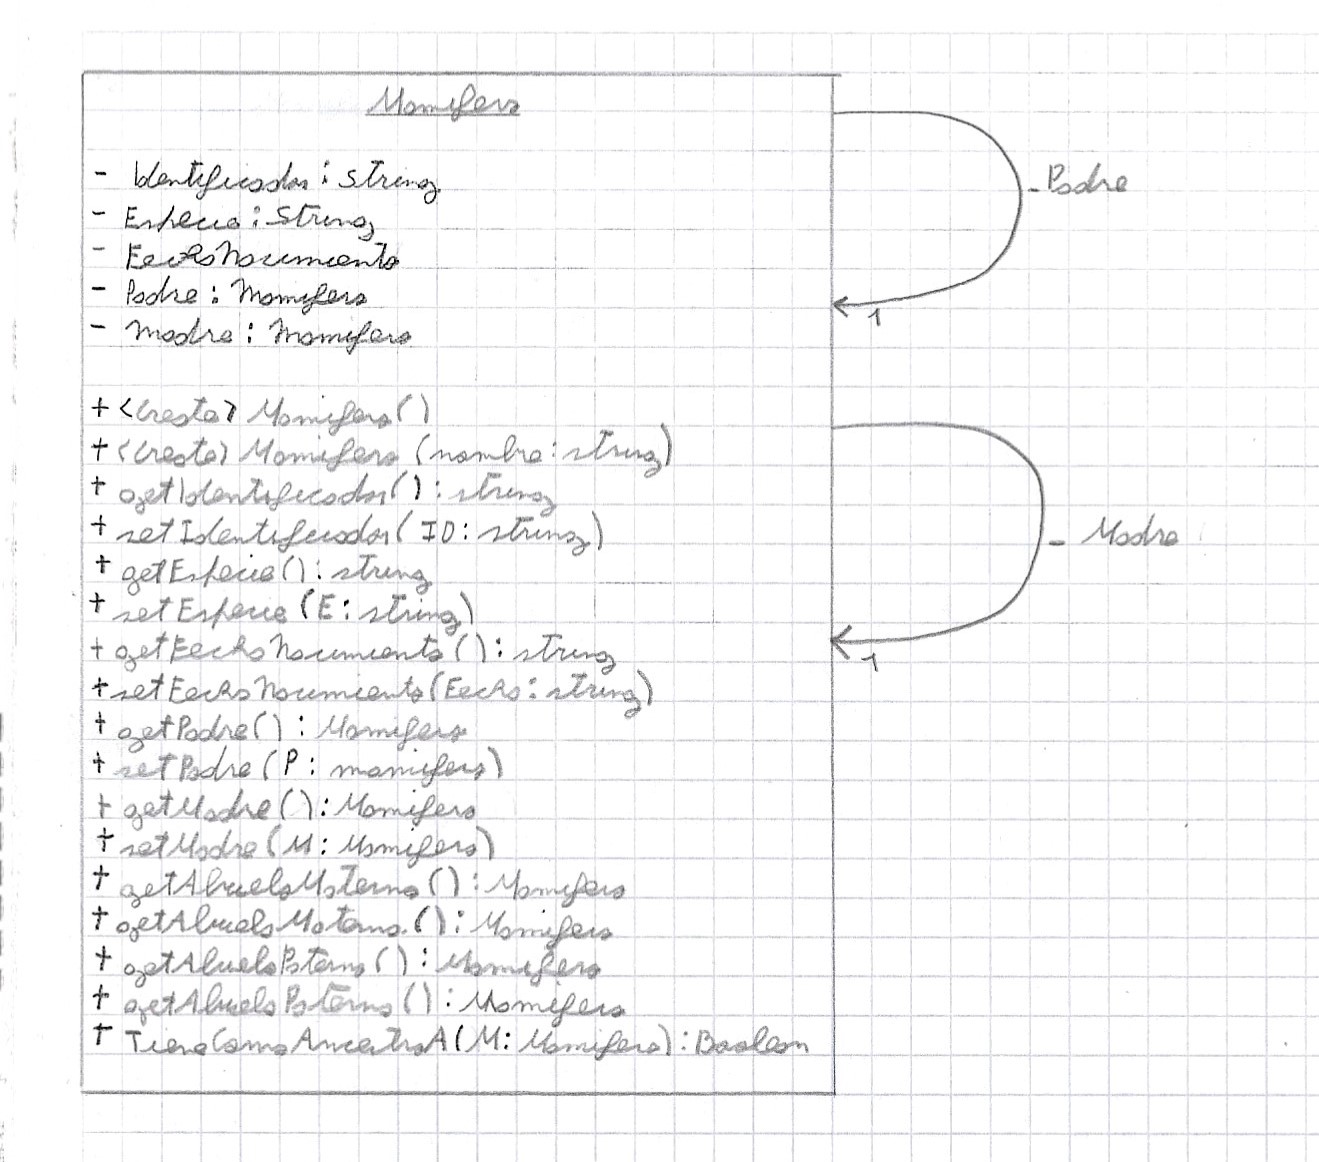 Mamifero
- Identificador: string
- Especie: String
- FechaNacimiento
- Padre: Mamifero
- Madre: Mamifero
+ <Create> Mamifero()
+ <Create> Mamifero (nombre: string)
+ getIdentificador(): string
+ setIdentificador(ID: string)
+ getEspecie(): string
+ setEspecie (E: string)
+ getFechaNacimiento(): string
+ setFechaNacimiento(Fecha: string)
+ getPadre(): Mamifero
+ setPadre (P: mamifero)
+ getMadre(): Mamifero
+ setMadre (M: Mamifero)
+ getAbueloMaterno(): Mamifero
+ getAbuelaMaterna(): Mamifero
+ getAbueloPaterno(): Mamifero
+ getAbuelaPaterna(): Mamifero
+ TieneComoAncestroA(M: Mamifero): Boolean
- Padre
1
- Madre
1